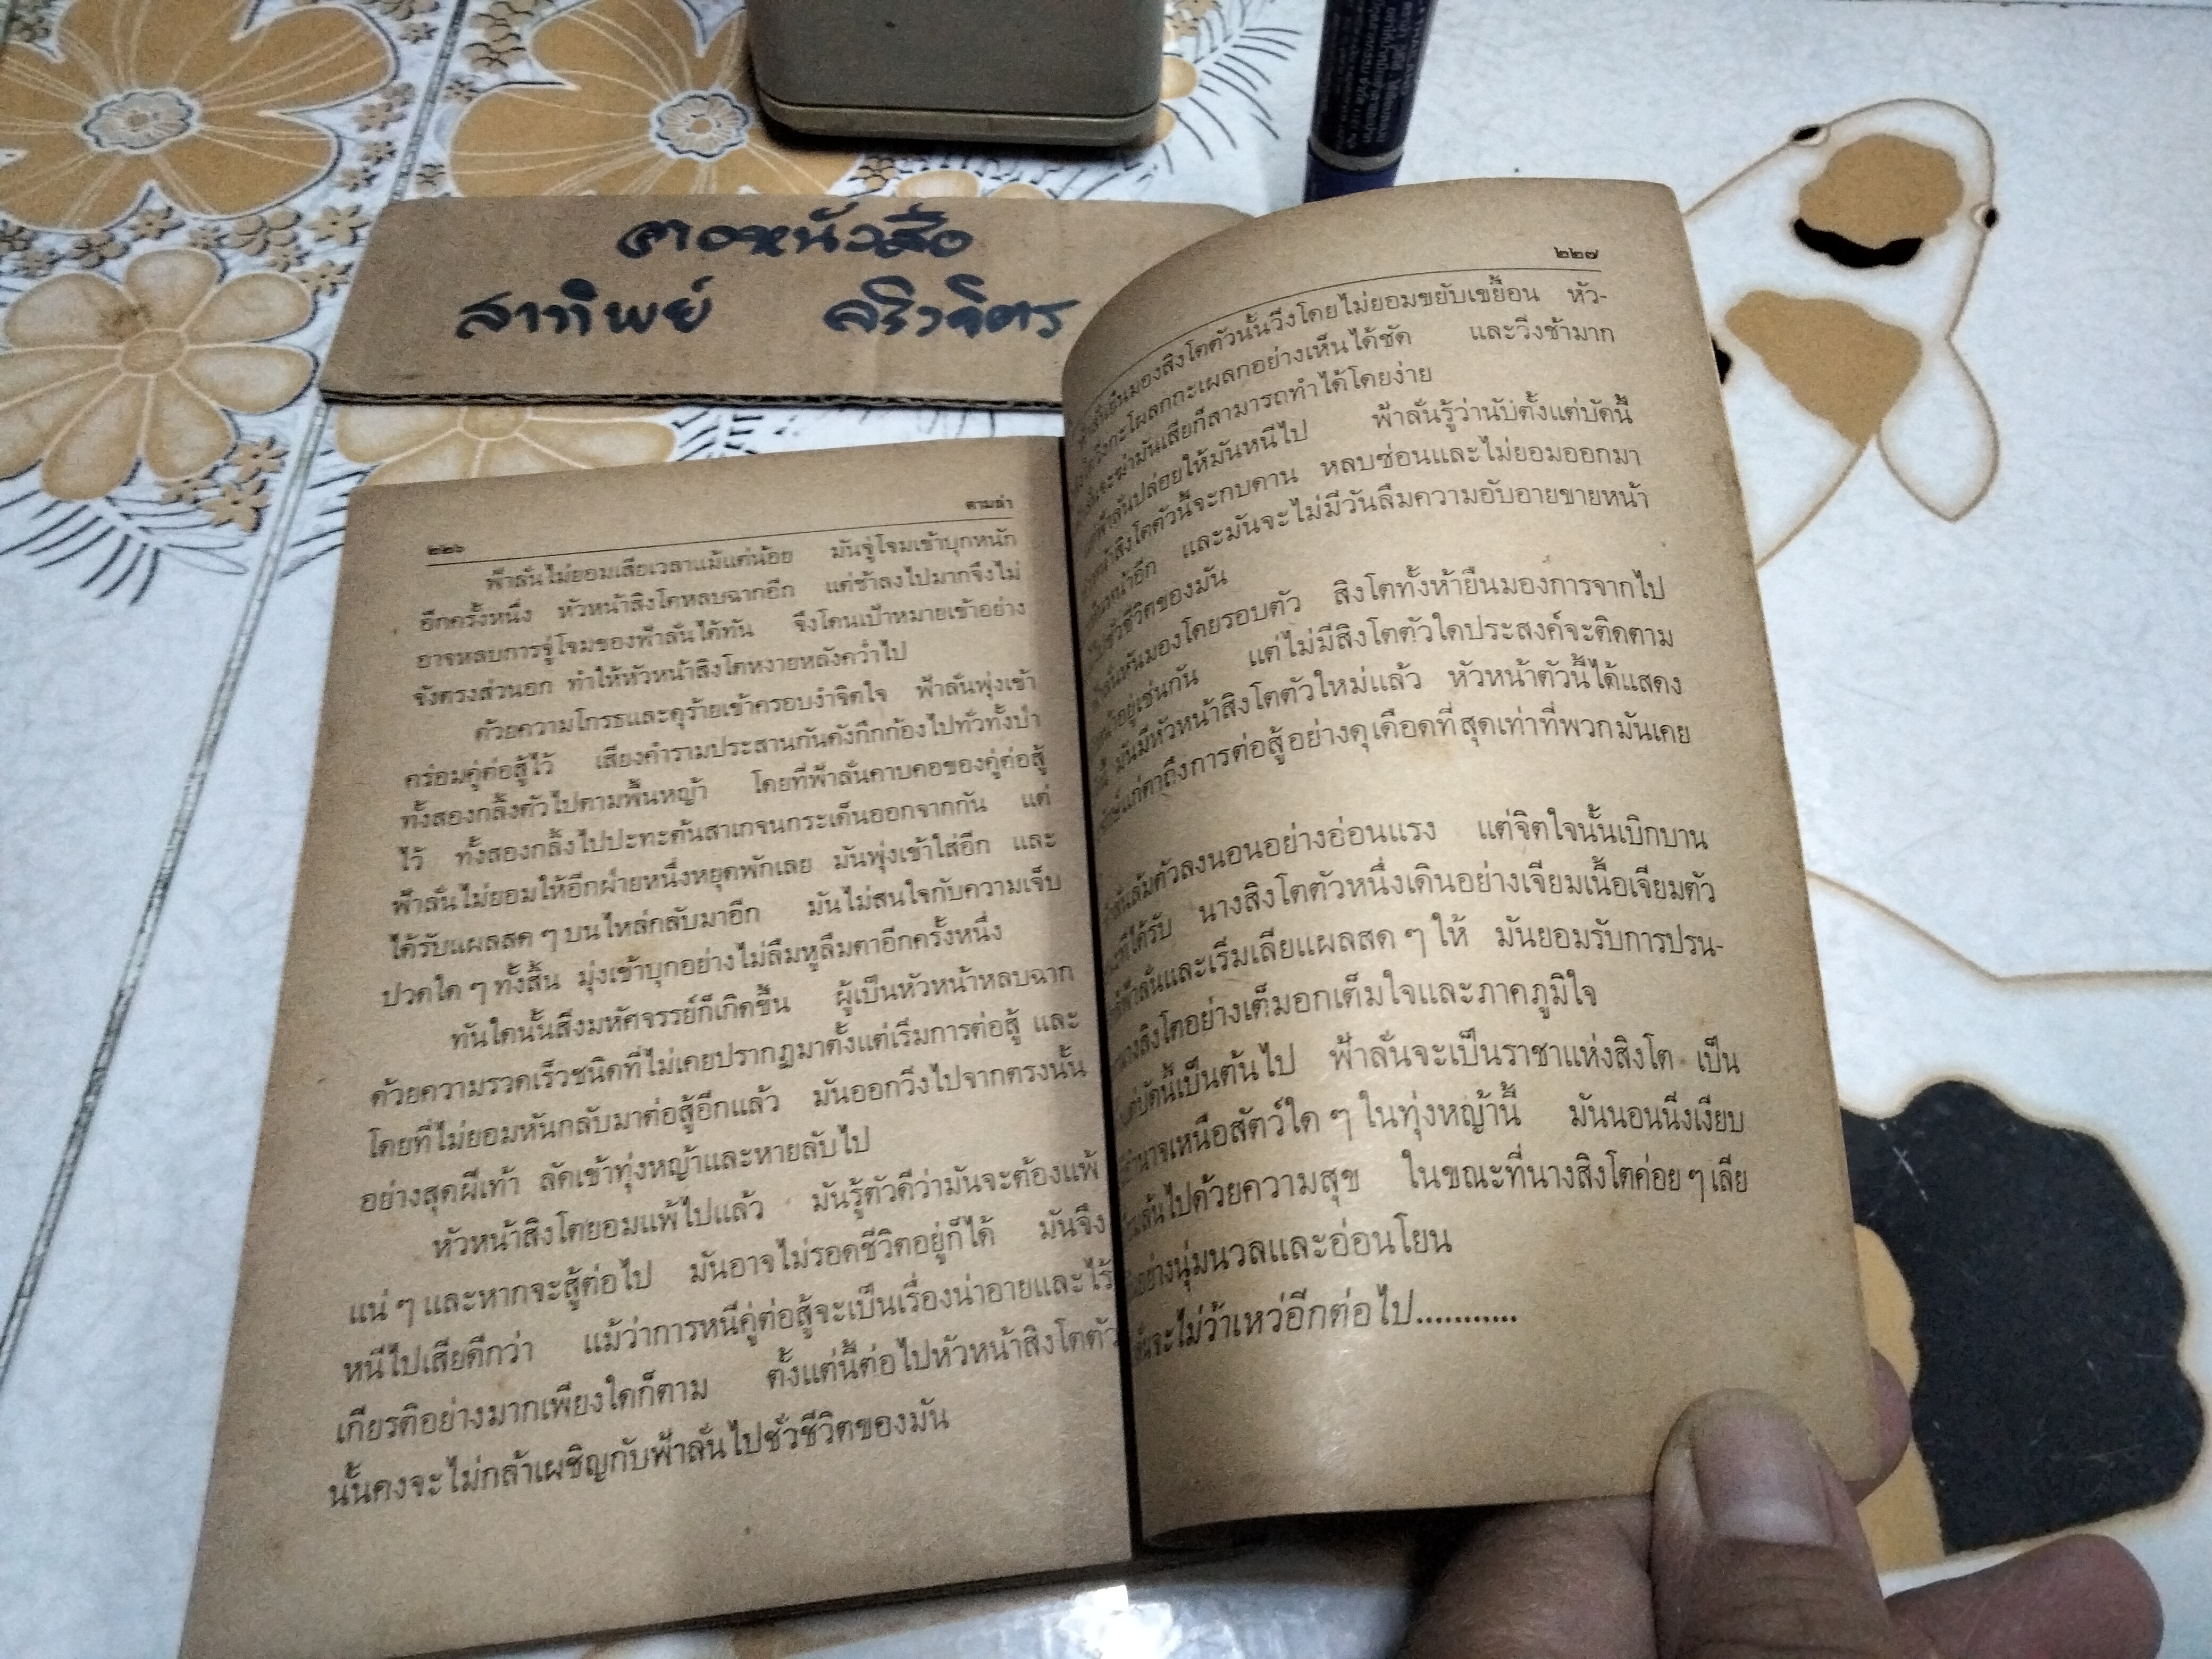 สาทิพย์
๒๒๖
ตามล่า
ฟ้าลั่นไม่ยอมเสียเวลาแม้แต่น้อย มันจู่โจมเข้าบุกหนัก
อีกครั้งหนึ่ง หัวหน้าสิงโตหลบฉากอีก แต่ช้าลงไปมากจึงไม่
อาจหลบการจู่โจมของฟ้าลั่นได้ทัน จึงโดนเป้าหมายเข้าอย่าง
จังตรงส่วนอก ทำให้หัวหน้าสิงโตหงายหลังคว่ำไป
ด้วยความโกรธและดุร้ายเข้าครอบงำจิตใจ ฟ้าลั่นพุ่งเข้า
คร่อมคู่ต่อสู้ไว้ เสียงคำรามประสานกันดังกึกก้องไปทั่วทั้งป่า
ทั้งสองกลิ้งตัวไปตามพื้นหญ้า โดยที่ฟ้าลั่นคาบคอของคู่ต่อสู้
ไว้ ทั้งสองกลิ้งไปปะทะต้นสาเกจนกระเด็นออกจากกัน แต่
ฟ้าลั่นไม่ยอมให้อีกฝ่ายหนึ่งหยุดพักเลย มันพุ่งเข้าใส่อีก และ
ได้รับแผลสด ๆ บนไหล่กลับมาอีก มันไม่สนใจกับความเจ็บ
ปวดใด ๆ ทั้งสิ้น มุ่งเข้าบุกอย่างไม่ลืมหูลืมตาอีกครั้งหนึ่ง
ทันใดนั้นสิ่งมหัศจรรย์ก็เกิดขึ้น ผู้เป็นหัวหน้าหลบฉาก
ด้วยความรวดเร็วชนิดที่ไม่เคยปรากฏมาตั้งแต่เริ่มการต่อสู้ และ
โดยที่ไม่ยอมหันกลับมาต่อสู้อีกแล้ว มันออกวิ่งไปจากตรงนั้น
อย่างสุดฝีเท้า ลัดเข้าทุ่งหญ้าและหายลับไป
หัวหน้าสิงโตยอมแพ้ไปแล้ว มันรู้ตัวดีว่ามันจะต้องแพ้
แน่ ๆ และหากจะสู้ต่อไป มันอาจไม่รอดชีวิตอยู่ก็ได้ มันจึง
หนีไปเสียดีกว่า แม้ว่าการหนีคู่ต่อสู้จะเป็นเรื่องน่าอายและไร้
เกียรติอย่างมากเพียงใดก็ตาม ตั้งแต่นี้ต่อไปหัวหน้าสิงโตตัว
นั้นคงจะไม่กล้าเผชิญกับฟ้าลั่นไปชั่วชีวิตของมัน
๒๒๗
มองสิงโตตัวนั้นวิ่งโดยไม่ยอมขยับเขยื้อน หัว-
วิ่งกะโผลกกะเผลกอย่างเห็นได้ชัด และวิ่งช้ามาก
จะฆ่ามันเสียก็สามารถทำได้โดยง่าย
ฟ้าลั่นปล่อยให้มันหนีไป ฟ้าลั่นรู้ว่านับตั้งแต่บัดนี้
หน้าสิงโตตัวนี้จะกบดาน หลบซ่อนและไม่ยอมออกมา
หน้าอีก และมันจะไม่มีวันลืมความอับอายขายหน้า
ชั่วชีวิตของมัน
หันมองโดยรอบตัว สิงโตทั้งห้ายืนมองการจากไป
อยู่เช่นกัน แต่ไม่มีสิงโตตัวใดประสงค์จะติดตาม
มันมีหัวหน้าสิงโตตัวใหม่แล้ว หัวหน้าตัวนี้ได้แสดง
แก่ตาถึงการต่อสู้อย่างดุเดือดที่สุดเท่าที่พวกมันเคย
ล้มตัวลงนอนอย่างอ่อนแรง แต่จิตใจนั้นเบิกบาน
ที่ได้รับ นางสิงโตตัวหนึ่งเดินอย่างเจียมเนื้อเจียมตัว
ฟ้าลั่นและเริ่มเลียแผลสด ๆ ให้ มันยอมรับการปรน-
นางสิงโตอย่างเต็มอกเต็มใจและภาคภูมิใจ
แต่บัดนี้เป็นต้นไป ฟ้าลั่นจะเป็นราชาแห่งสิงโต เป็น
อำนาจเหนือสัตว์ใด ๆ ในทุ่งหญ้านี้ มันนอนนิ่งเงียบ
ไปด้วยความสุข ในขณะที่นางสิงโตค่อย ๆ เลีย
อย่างนุ่มนวลและอ่อนโยน
จะไม่ว้าเหว่อีกต่อไป...........